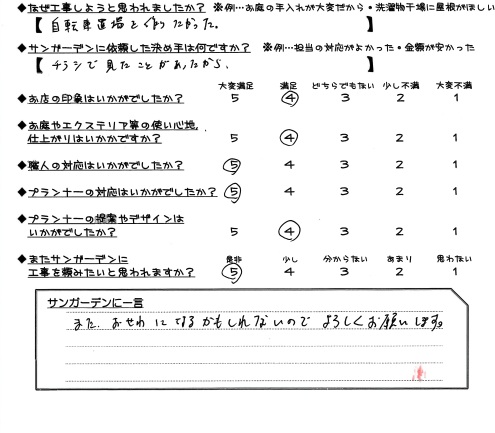 ◆なぜ工事しようと思われましたか? ※例…お庭の手入れが大変だから・洗濯物干場に屋根がほしい
【 自転車置場をつくりたかった。 】
◆サンガーデンに依頼した決め手は何ですか? ※例…担当の対応がよかった・金額が安かった
【 チラシで見たことがあったから、 】
大変満足 満足 どちらでもない 少し不満 大変不満
◆お店の印象はいかがでしたか? 5 4 3 2 1
◆お庭やエクステリア等の使い心地,
仕上がりはいかかですか? 5 4 3 2 1
◆職人の対応はいかがでしたか? 5 4 3 2 1
◆プランナーの対応はいかがでしたか? 5 4 3 2 1
◆プランナーの提案やデザインは
いかがでしたか? 5 4 3 2 1
◆またサンガーデンに 是非 少し 分からない あまり 思わない
工事を頼みたいと思われますか? 5 4 3 2 1
サンガーデンに一言
また、おせわになるかもしれないので よろしくお願いします。